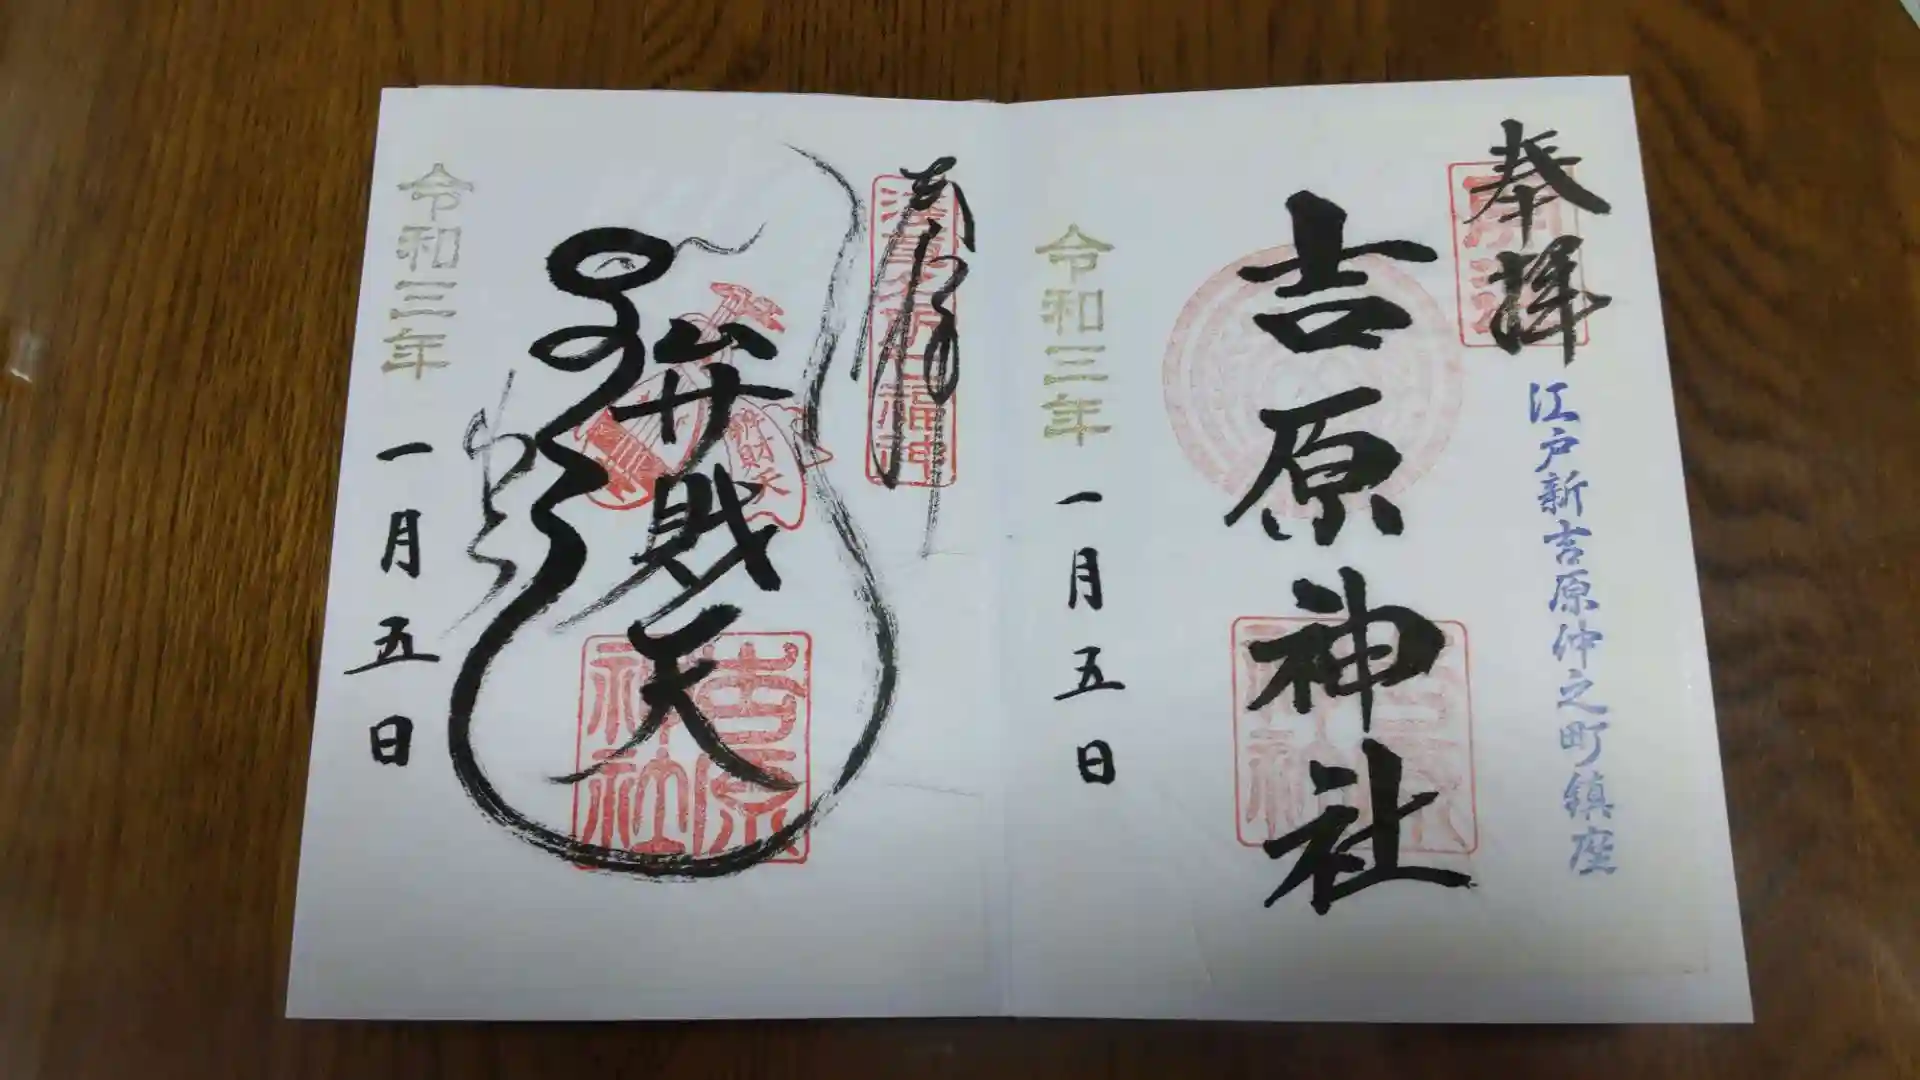 奉拝
江戸新吉原仲之町鎮座
吉原神社
令和三年
一月五日
奉拝
浅草名所七福神
弁財天
弁財天
吉原
神社
令和三年
一月五日